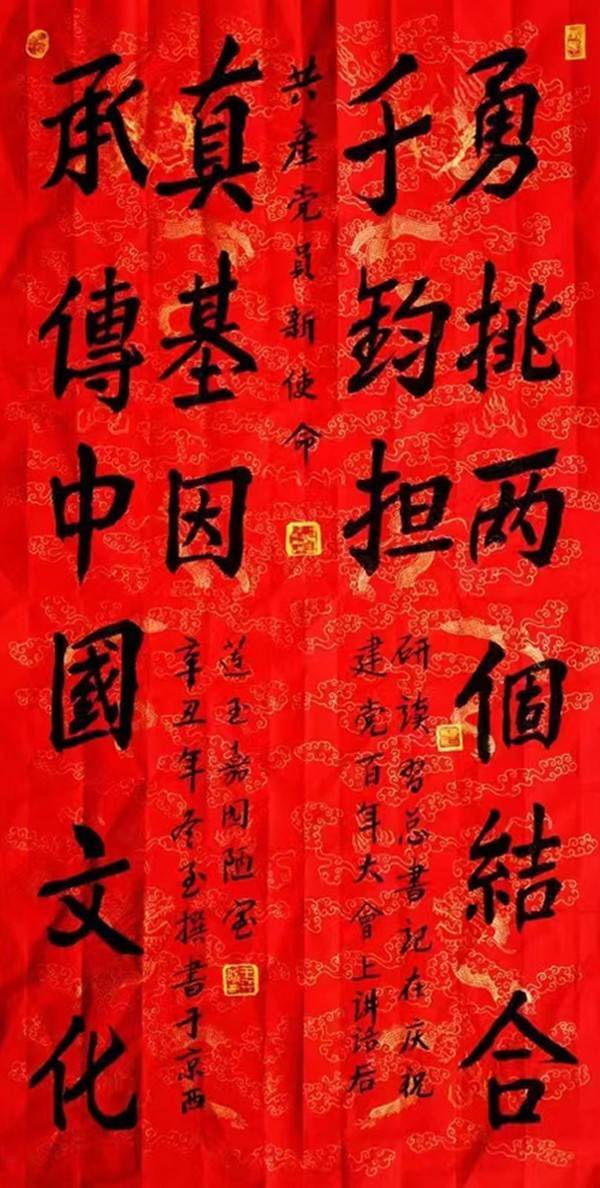 勇挑两個結合
千鈞担
承傳中國文化
真基因
共産党員新使命
研读習总書記在庆祝
建党百年大會上讲話后
辛丑年冬至撰書于京西
莲玉嘉园陋室